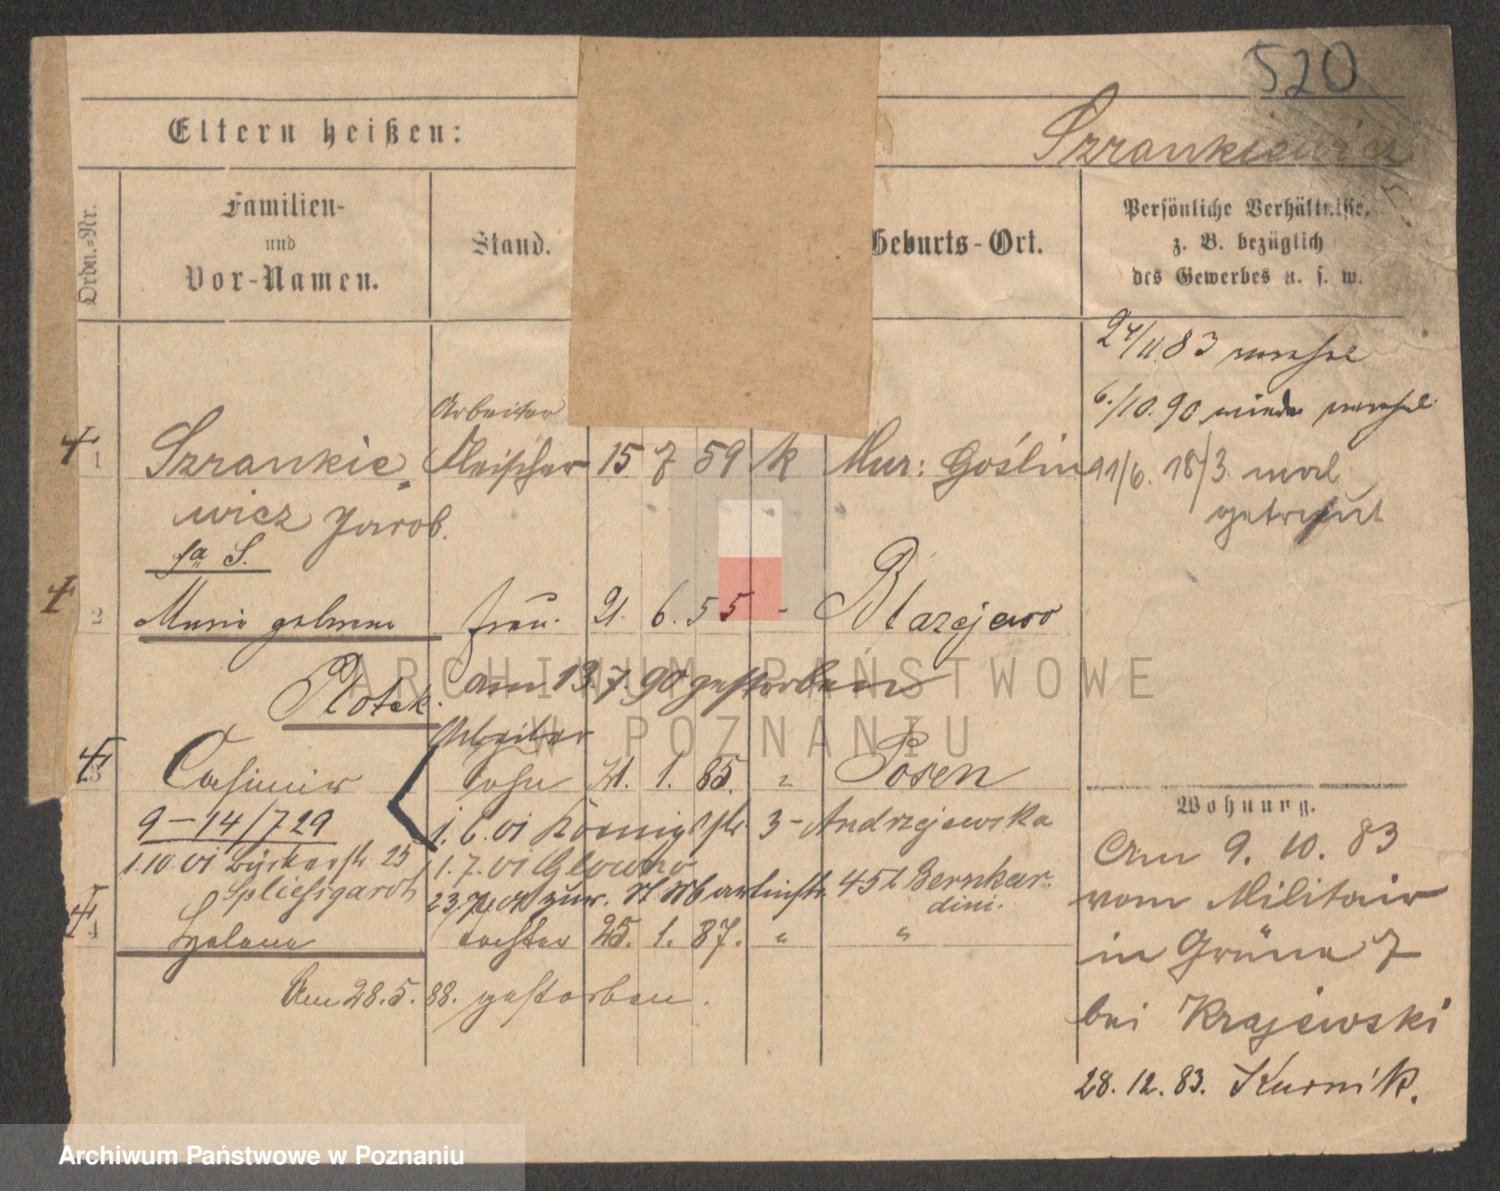 520
Eltern heißen:
Szrankiewicz
Ordn.-Nr.
Familien-
und
Vor-Namen.
Stand.
Geburts-Ort.
Persönliche Verhältnisse,
z. B. bezüglich
des Gewerbes u. s. w.
24/11 83
6./10. 90 wieder
Arbeiter
1 Szrankie= Fleischer 15 7 59 k Mur: Goślin
11/6. 18/3. mal
getraut
wicz Jacob.
fa S.
2 Maria geborene Frau. 21. 6. 55 - Blazejewo
Plotek. am 13.7.90 gestorben
Arbeiter
3 Casimir Sohn 21. 1. 85. " Posen
Wohnung.
9–14/729 1. 6. 01 Königstr. 3– Andrzejewska
Am 9. 10. 83
1.10.01 Bäckerstr. 25 1.7.01 Glowno
Spliessgardt 23.7.01 zur. St Martinstr. 45I Bernhar-
dini.
vom Militair
4 Helene Tochter 25. 1. 87. " "
in Grüne 7
Am 28.5. 88. gestorben.
bei Krajewski
28. 12. 83. Kurnik.
ARCHIWUM PAŃSTWOWE
W POZNANIU
Archiwum Państwowe w Poznaniu